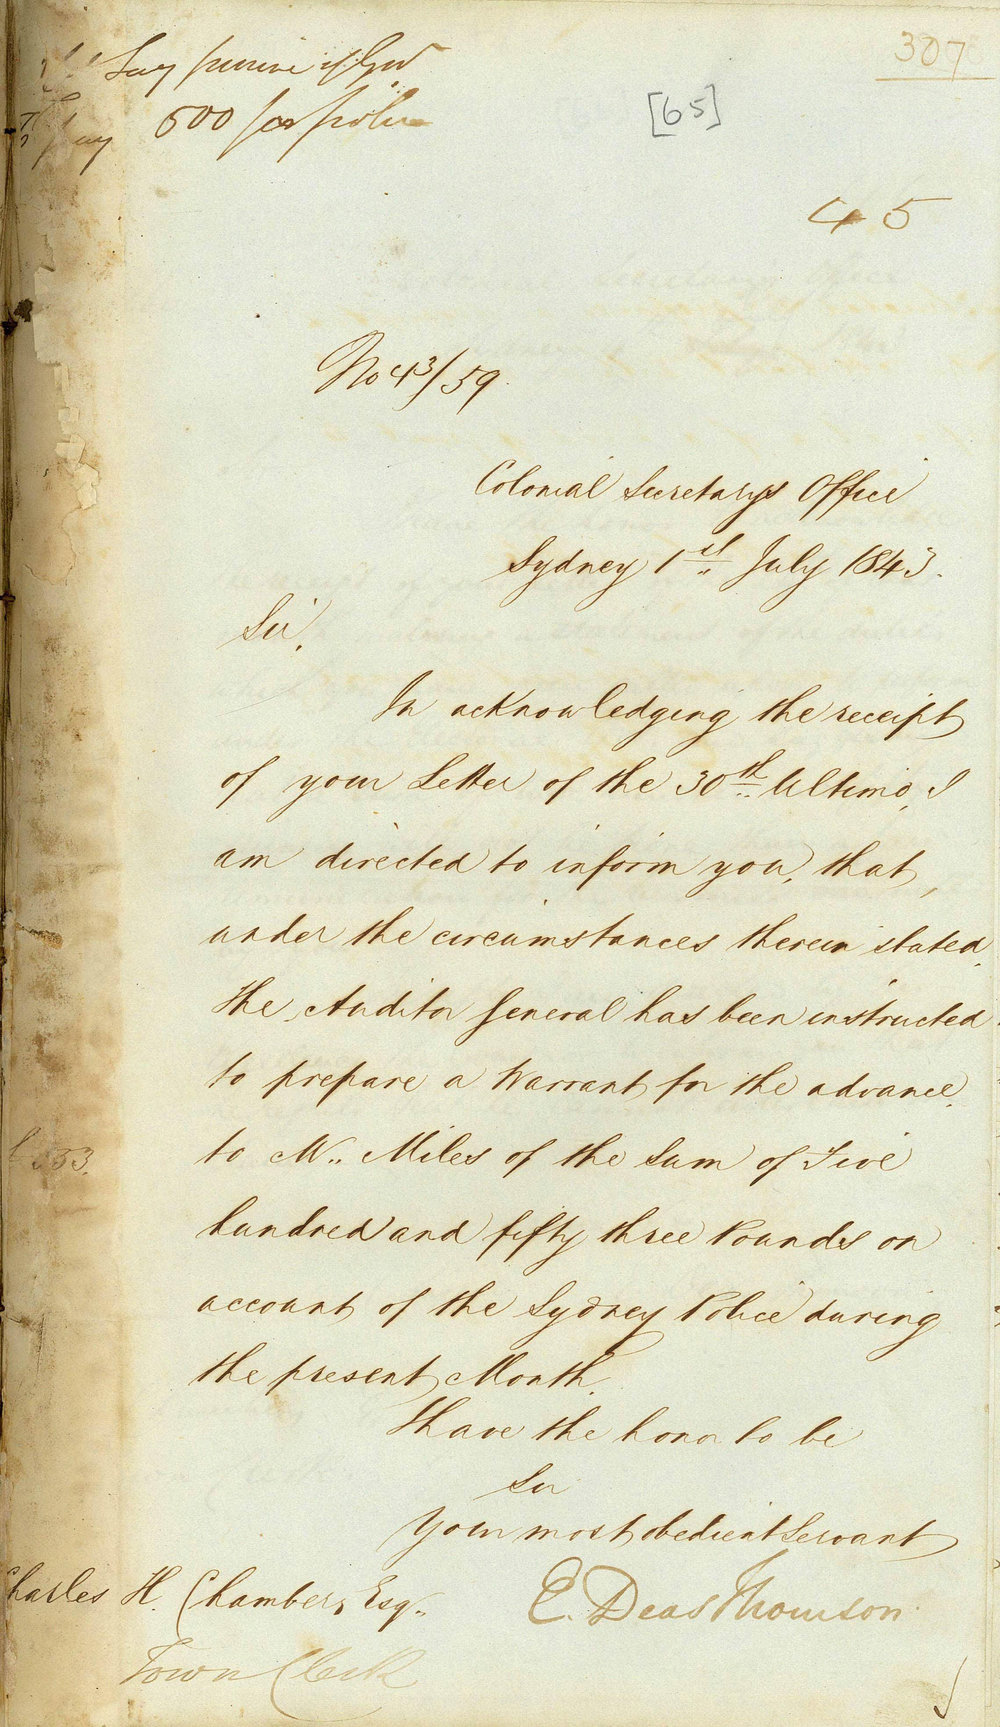 307
[65]
500 for police
45
No 43/59.
Colonial Secretarys Office
Sydney 1st July 1843.
Sir,
In acknowledging the receipt
of your Letter of the 30th Ultimo, I
am directed to inform you, that,
under the circumstances therein stated,
the Auditor General has been instructed
to prepare a Warrant for the advance
to Mr. Miles of the Sum of Five
£553.
hundred and fifty three Pounds on
account of the Sydney Police during
the present Month.
I have the honor to be
Sir
Your most obedient Servant
E. Deas Thomson
Charles H. Chambers, Esq.
Town Clerk